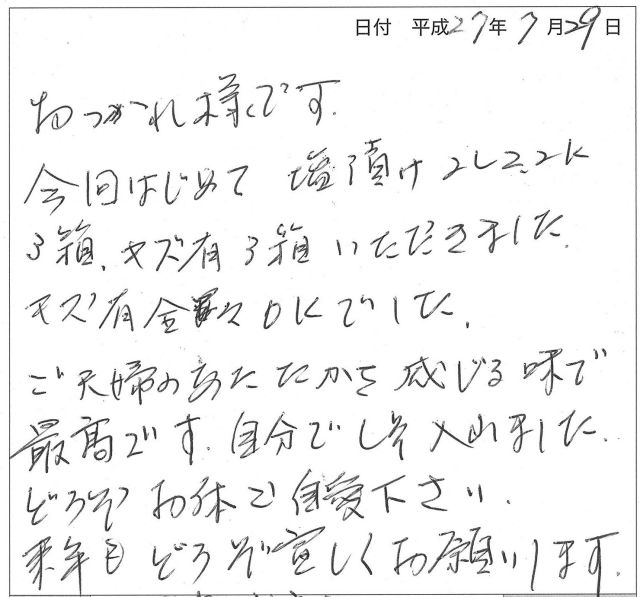 日付 平成27年7月29日
おつかれ様です.
今回はじめて 塩漬け 2L 2.2K
3箱、キズ有3箱いただきました.
キズ有全々OKでした.
ご夫婦のあたたかさ感じる味で
最高です.自分でしそ入れました.
どうぞお体ご自愛下さい.
来年もどうぞ宜しくお願いします.